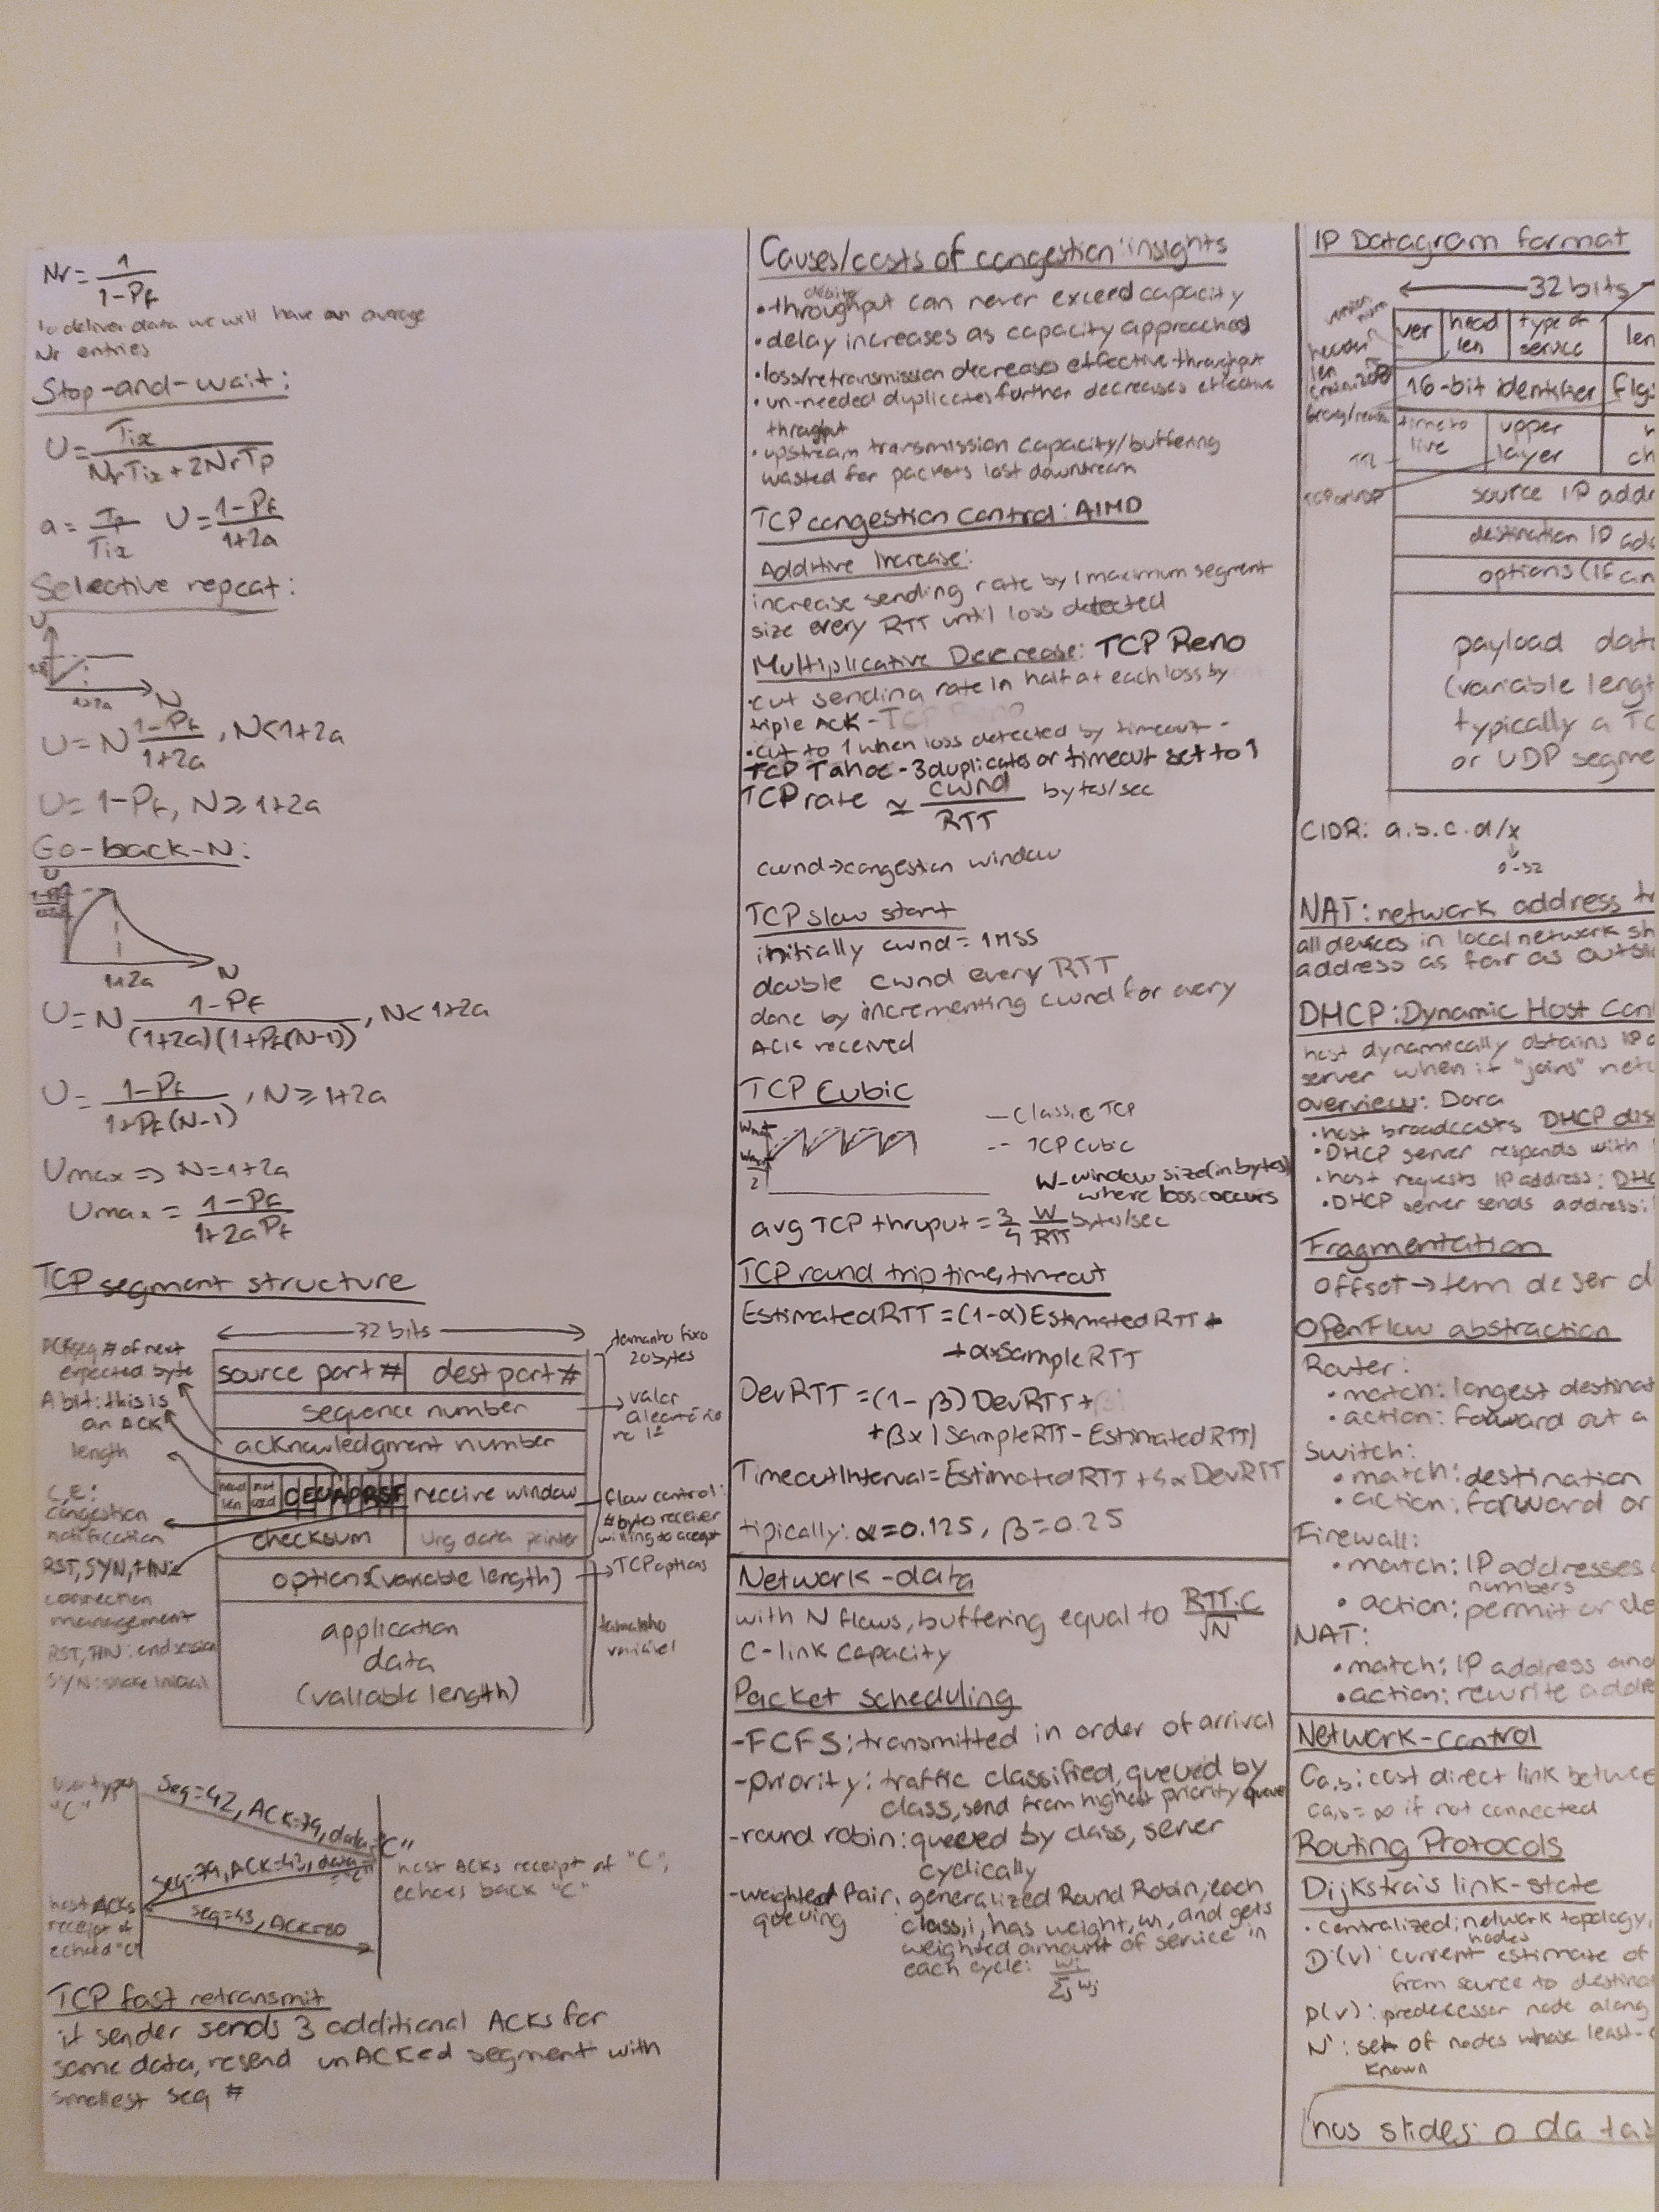 Nr = 1/(1-Pf)
To deliver data we will have an average
Nr entries
Stop-and-wait:
U = Tix/(NrTix + 2NrTp)
a = Tp/Tix U = (1-Pf)/(1+2a)
Selective repeat:
U
1+2a
N
U = N (1-Pf)/(1+2a), N<1+2a
U = 1-Pf, N ≥ 1+2a
Go-back-N:
U
1+2a N
U = N (1-Pf)/((1+2a)(1+Pf(N-1))), N<1+2a
U = (1-Pf)/(1+Pf(N-1)), N ≥ 1+2a
Umax => N=1+2a
Umax = (1-Pf)/(1+2aPf)
TCP segment structure
32 bits
ACK: seq # of next
expected byte
A bit: this is
an ACK
length
C, E:
congestion
notification
RST, SYN, FIN:
connection
management
RST, FIN: end session
source port # dest port #
sequence number
acknowledgment number
head len not used C E U A P R S F receive window
checksum Urg data pointer
options (variable length)
application
data
(variable length)
tamanho fixo
20 bytes
valor
aleatório
no 1º
flow control:
# bytes receiver
willing to accept
TCP options
tamanho
variável
User types
"C"
Seq=42, ACK=79, data="C"
Seq=79, ACK=43, data="C"
host ACKs receipt of "C",
echoes back "C"
host ACKs
receipt of
echoed "C"
Seq=43, ACK=80
TCP fast retransmit
if sender sends 3 additional ACKs for
same data, resend unACKed segment with
smallest seq #
Causes/costs of congestion: insights
débito
• throughput can never exceed capacity
• delay increases as capacity approached
• loss/retransmission decreases effective throughput
• un-needed duplicates further decreases effective
throghput
• upstream transmission capacity/buffering
wasted for packets lost downstream
TCP congestion control: AIMD
Additive Increase:
increase sending rate by 1 maximum segment
size every RTT until loss detected
Multiplicative Decrease: TCP Reno
• cut sending rate in half at each loss by
triple ACK - TCP Reno
• cut to 1 when loss detected by timeout -
TCP Tahoe - 3 duplicates or timeout set to 1
TCP rate ≃ cwnd/RTT bytes/sec
cwnd → congestion window
TCP slow start
initially cwnd = 1 MSS
double cwnd every RTT
done by incrementing cwnd for every
ACK received
TCP Cubic
— Classic TCP
-- TCP Cubic
Wmax
Wmax/2
W - window size (in bytes)
where loss occurs
avg TCP thruput = 3/4 W/RTT bytes/sec
TCP round trip time, timeout
EstimatedRTT = (1-α)EstimatedRTT +
+ α×SampleRTT
DevRTT = (1-β)DevRTT +
+ β×|SampleRTT - EstimatedRTT|
TimeoutInterval = EstimatedRTT + 4×DevRTT
tipically: α=0.125, β=0.25
Network-data
with N flows, buffering equal to RTT.C/√N
C-link capacity
Packet scheduling
- FCFS: transmitted in order of arrival
- priority: traffic classified, queued by
class, send from highest priority queue
- round robin: queued by class, server
cyclically
- weighted fair queuing: generalized Round Robin, each
class, i, has weight, wi, and gets
weighted amount of service in
each cycle: wi/Σj wj
IP Datagram format
32 bits
ver head len type of service len
16-bit identifier flgs
time to live upper layer
TTL
TCP or UDP
source IP addr
destination IP add
options (if an
payload data
(variable lengt
typically a TC
or UDP segme
CIDR: a.b.c.d/x
0-32
NAT: network address tr
all devices in local network sh
address as far as outsi
DHCP: Dynamic Host Con
host dynamically obtains IP a
server when it "joins" netw
overview: Dora
• host broadcasts DHCP dis
• DHCP server responds with
• host requests IP address: DHC
• DHCP server sends address:
Fragmentation
offset → tem de ser d
OpenFlow abstraction
Router:
• match: longest destinat
• action: forward out a
Switch:
• match: destination
• action: forward or
Firewall:
• match: IP addresses
numbers
• action: permit or de
NAT:
• match: IP address and
• action: rewrite addre
Network-control
Ca,b: cost direct link betwee
Ca,b = ∞ if not connected
Routing Protocols
Dijkstra's link-state
• centralized: network topology,
nodes
D(v): current estimate of
from source to destinat
p(v): predecessor node along
N': set of nodes whose least-c
known
nos slides: o da ta